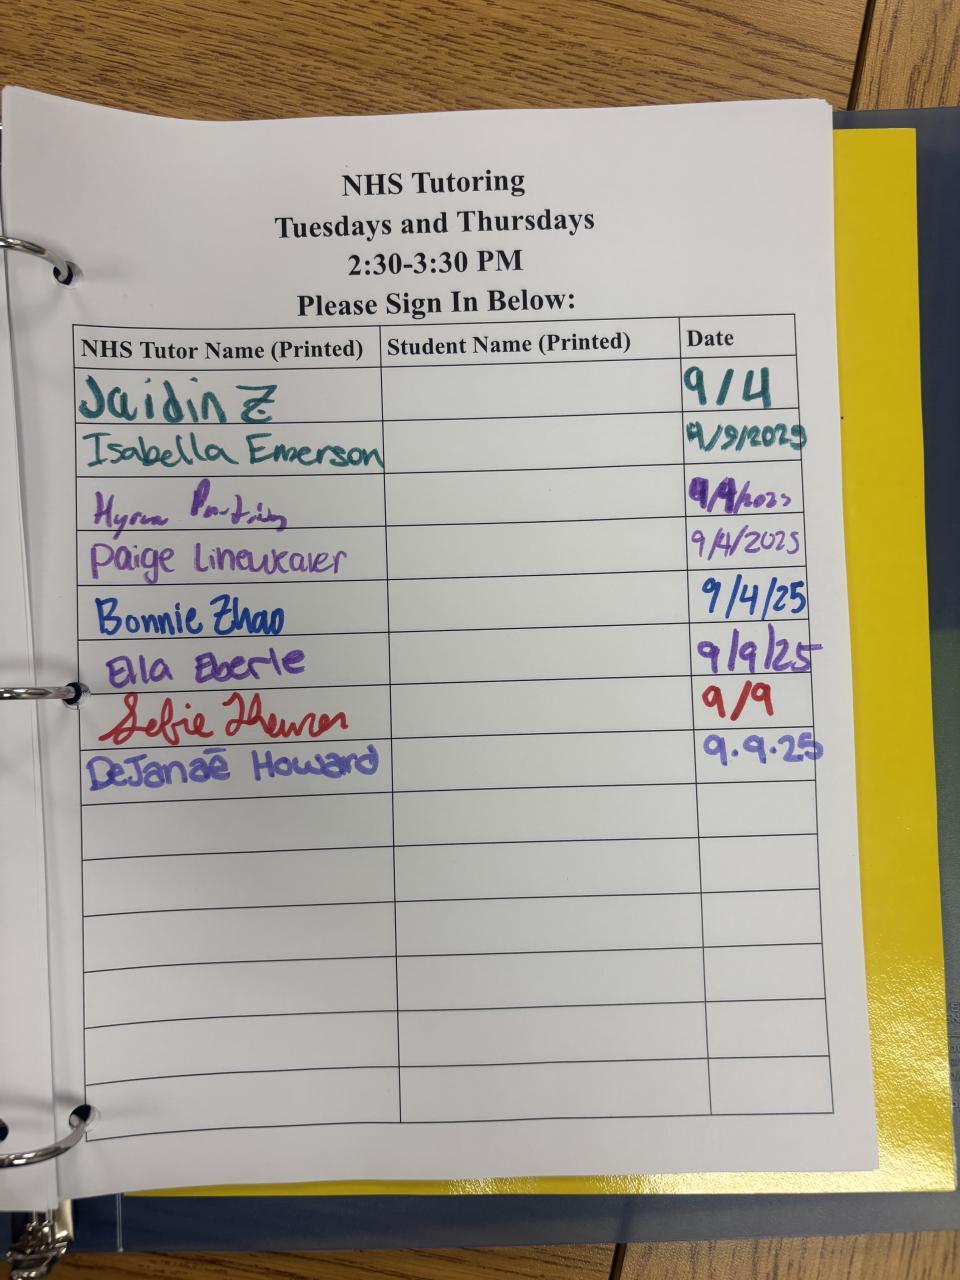 NHS Tutoring
Tuesdays and Thursdays
2:30-3:30 PM
Please Sign In Below:
NHS Tutor Name (Printed) Student Name (Printed) Date
Jaidin Z 9/4
Isabella Emerson /9/2025
Paige Lineweaver 9/4/2025
Bonnie Zhao 9/4/25
Ella Eberle 9/9/25
9/9
DeJanaē Howard 9.9.25